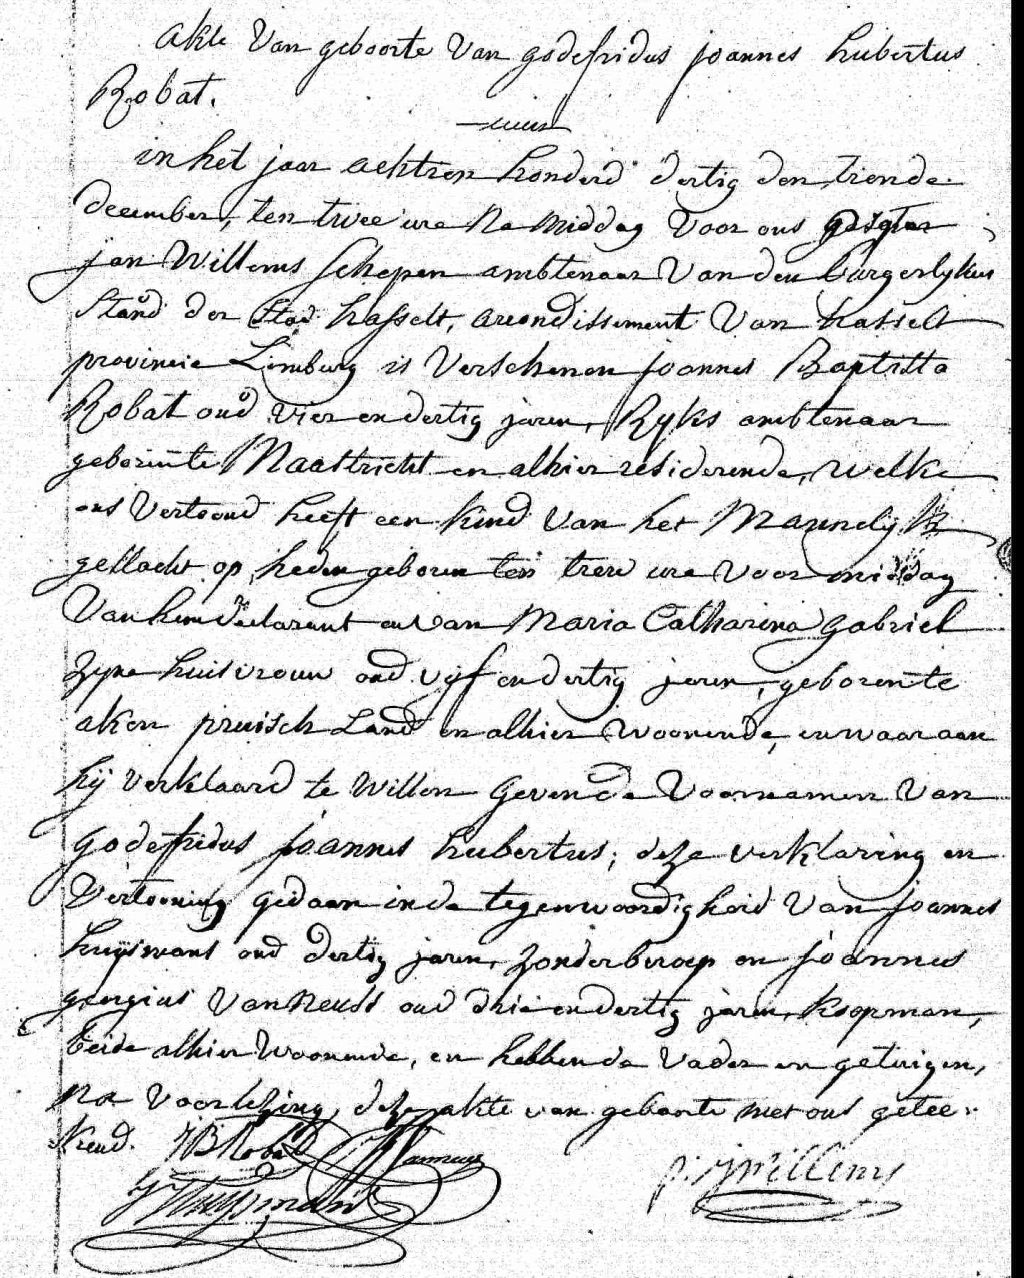 akte van geboorte van godefridus joannes hubertus
Robat.
in het jaar achtien honderd dertig den tiende
december, ten twee ure na middag voor ons
jan Willems schepen ambtenaar van den burgerlyken
stand der stad hasselt, arondissement van hasselt
provincie Limburg is verschenen joannes Baptista
Robat oud vier en dertig jaren, Ryks ambtenaar
geboren te Maastricht en alhier residerende, welke
ons vertoond heeft een kind van het Mannelyk
geslacht op heden geboren ten twee ure voor middag
van hem declarant en van Maria Catharina gabriel
zyne huisvrouw oud vyf en dertig jaren, geboren te
aken pruisch Land en alhier woonende, en waar aan
hij verklaard te willen geven de voornamen van
godefridus joannes hubertus; deze verklaring en
vertooning gedaan in de tegenwoordigheid van joannes
huijsmans oud dertig jaren, zonder beroep en joannes
georgius van Neuss oud drie en dertig jaren, koopman,
beide alhier woonende, en hebben de vader en getuigen,
na voorlezing, deze akte van geboorte met ons getee-
kend. JB Robat
Huysmans
p. j. willems